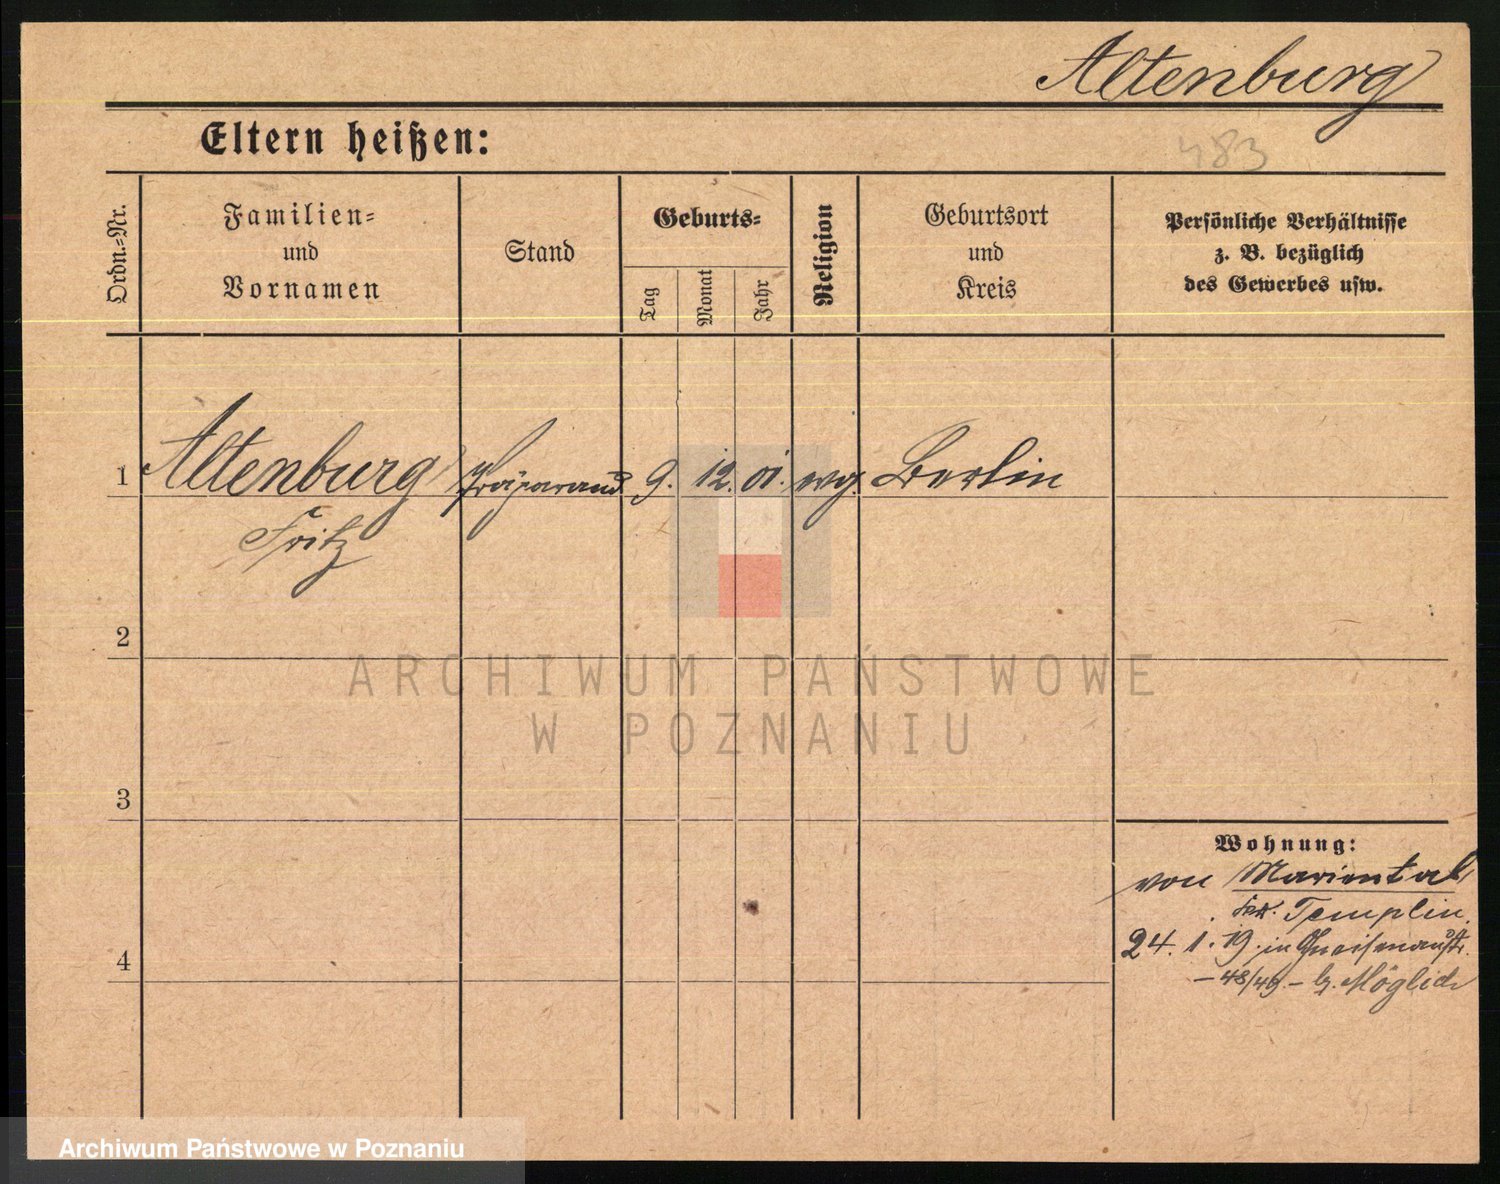 Altenburg
Eltern heißen:
483
Ordn.-Nr.
Familien-
und
Vornamen
Stand
Geburts-
Tag
Monat
Jahr
Religion
Geburtsort
und
Kreis
Persönliche Verhältnisse
z. B. bezüglich
des Gewerbes usw.
1 Altenburg Präparand 9. 12. 01. evg. Berlin
Fritz
2
ARCHIWUM PAŃSTWOWE
W POZNANIU
3
Wohnung:
von Mariental
Templin.
4
24. 1. 19. in Gneisenaustr.
– 48/49. – b. Möglich
Archiwum Państwowe w Poznaniu